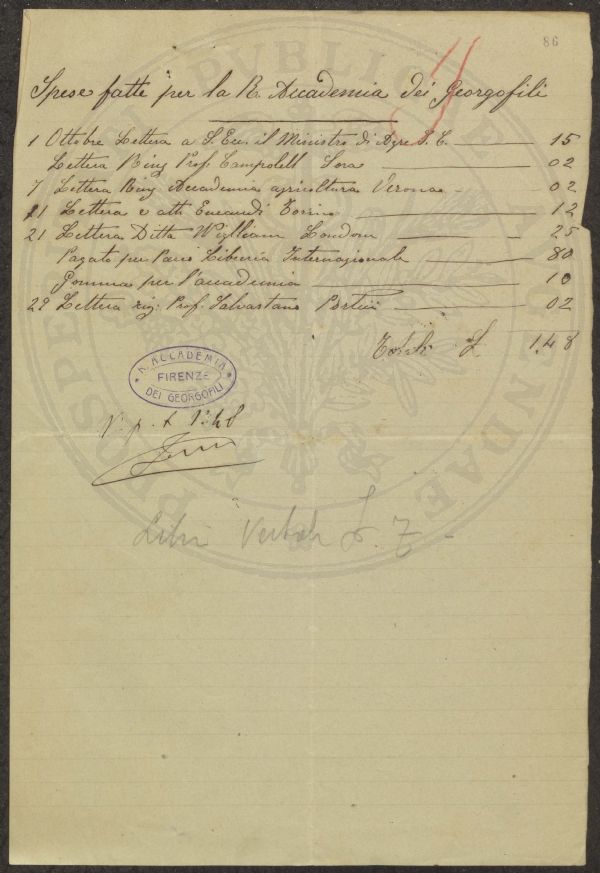 86
Spese fatte per la R. Accademia dei Georgofili
1 Ottobre Lettera a S. Ecc. il Ministro di Agre I. C. 15
Lettera Ring Prof. Campolell Sora 02
7 Lettera Ring Accademia agricoltura Verona 02
11 Lettera e atti Torino 12
21 Lettera Ditta Wylliam London 25
Pagato per Pacco Libreria Internazionale 80
Gomma per l'accademia 10
29 Lettera rig. Prof. Salvastano Portici 02
Totale L. 1.48
R. ACCADEMIA
FIRENZE
DEI GEORGOFILI
V. p. £ 1:48
Libri L. 7 -
PROSPERITATI PUBLICAE AUGENDAE